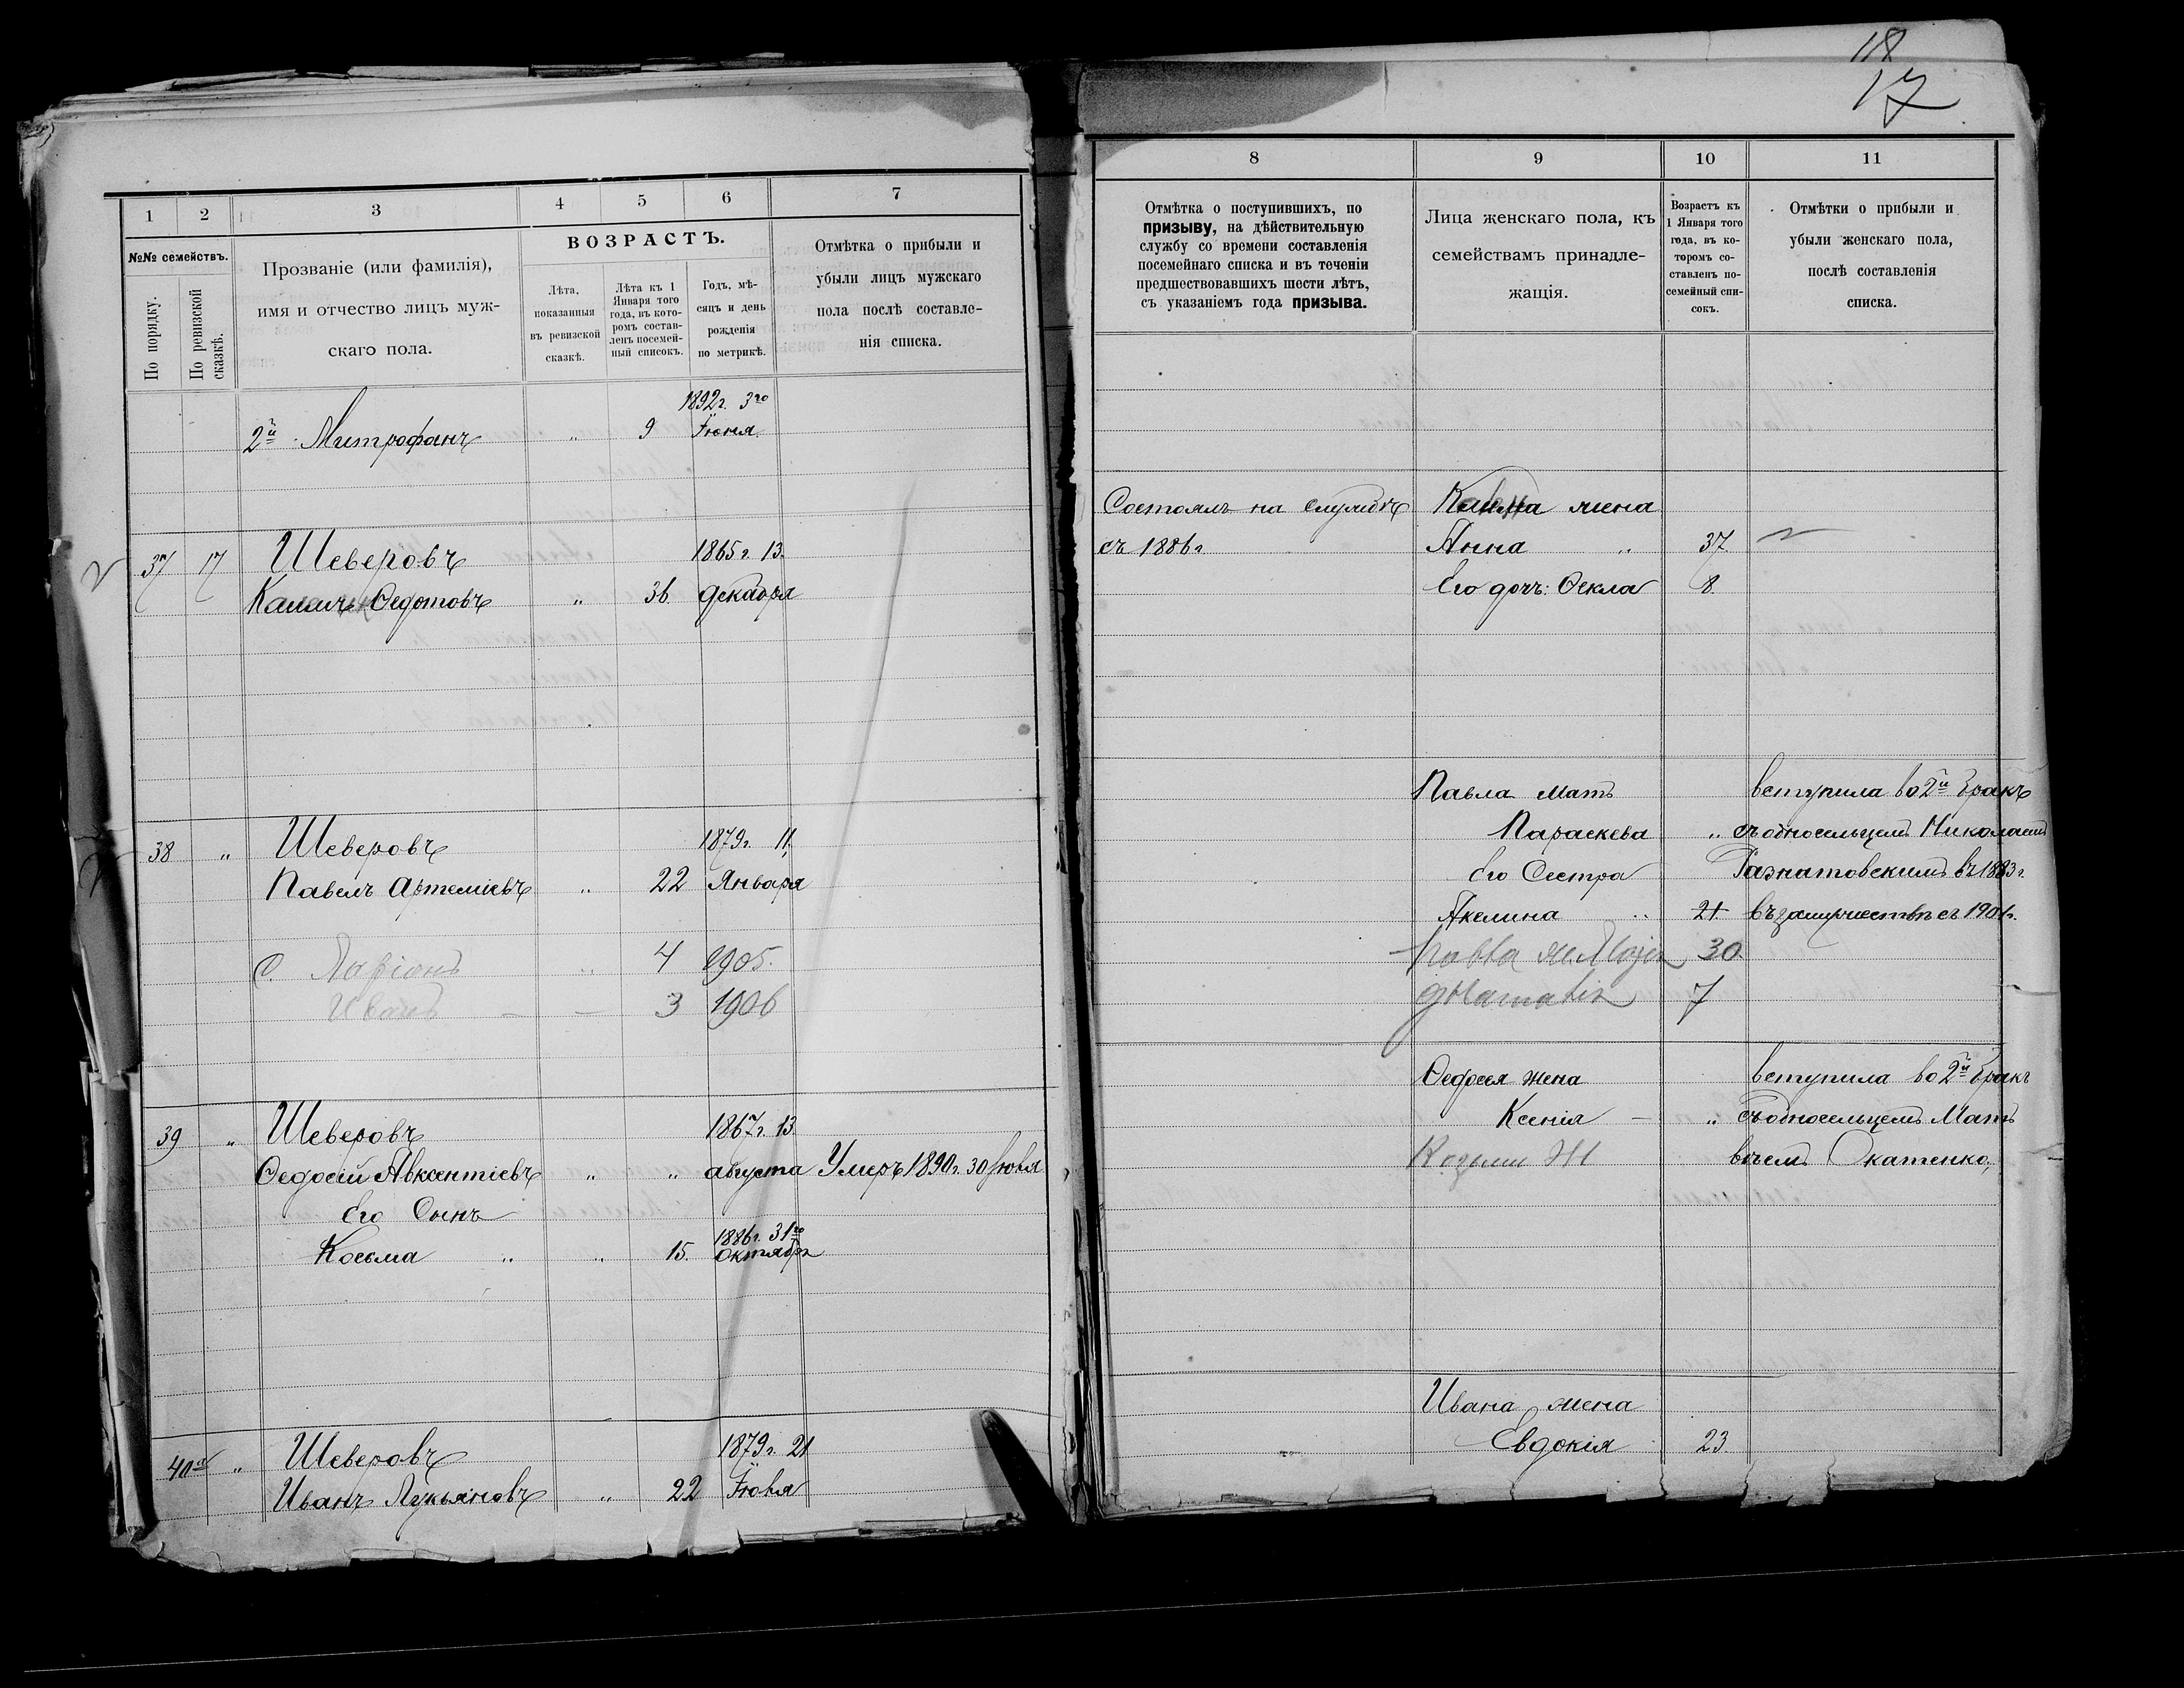 18
17
1
2
3
4
5
6
7
№№ семействъ.
По порядку.
По ревизской сказкѣ.
Прозваніе (или фамилія),
имя и отчество лицъ муж-
скаго пола.
ВОЗРАСТЪ.
Лѣта,
показанныя
въ ревизской
сказкѣ.
Лѣта къ 1
Января того
года, въ кото-
ромъ состав-
ленъ посемей-
ный списокъ.
Годъ, мѣ-
сяцъ и день
рожденія
по метрикѣ.
Отмѣтка о прибыли и
убыли лицъ мужскаго
пола послѣ составле-
нія списка.
1892г. 3го
2й Митрофанъ " 9 Іюня.
37 17 Шеверовъ 1865г. 13.
Ѳедотовъ " 36. декабря
38 " Шеверовъ 1879г. 11.
Павелъ Артеміевъ " 22 Января
С. Ларіонъ " 4 1905.
Иванъ — — 3 1906
39 " Шеверовъ 1867г. 13.
Ѳедосій Авксентіевъ " " августа Умеръ 1890г. 30 Іюля
Его Сынъ
1886г. 31го
Косьма " " 15. октября
40й " Шеверовъ 1879г. 21
Иванъ Лукьяновъ " 22 Іюля
8
9
10
11
Отмѣтка о поступившихъ, по
призыву, на дѣйствительную
службу со времени составленія
посемейнаго списка и въ теченіи
предшествовавшихъ шести лѣтъ,
съ указаніемъ года призыва.
Лица женскаго пола, къ
семействамъ принадле-
жащія.
Возрастъ къ
1 Января того
года, въ ко-
торомъ со-
ставленъ по-
семейный спи-
сокъ.
Отмѣтки о прибыли и
убыли женскаго пола,
послѣ составленія
списка.
Состоялъ на службѣ жена
съ 1886г Анна " 37
Его дочь: Ѳекла 8.
Павла мать вступила во 2й бракъ
Параскева " съ односельцемъ Николаемъ
Его Сестра въ 1883г.
Акелина " 21 въ замужествѣ съ 1901г.
Павла ж. 30
7
Ѳедосея жена вступила во 2й бракъ
Ксенія — " съ односельцемъ Мат
вѣемъ Скатенко,
Козьмы Ж
Ивана жена
Евдокія 23.